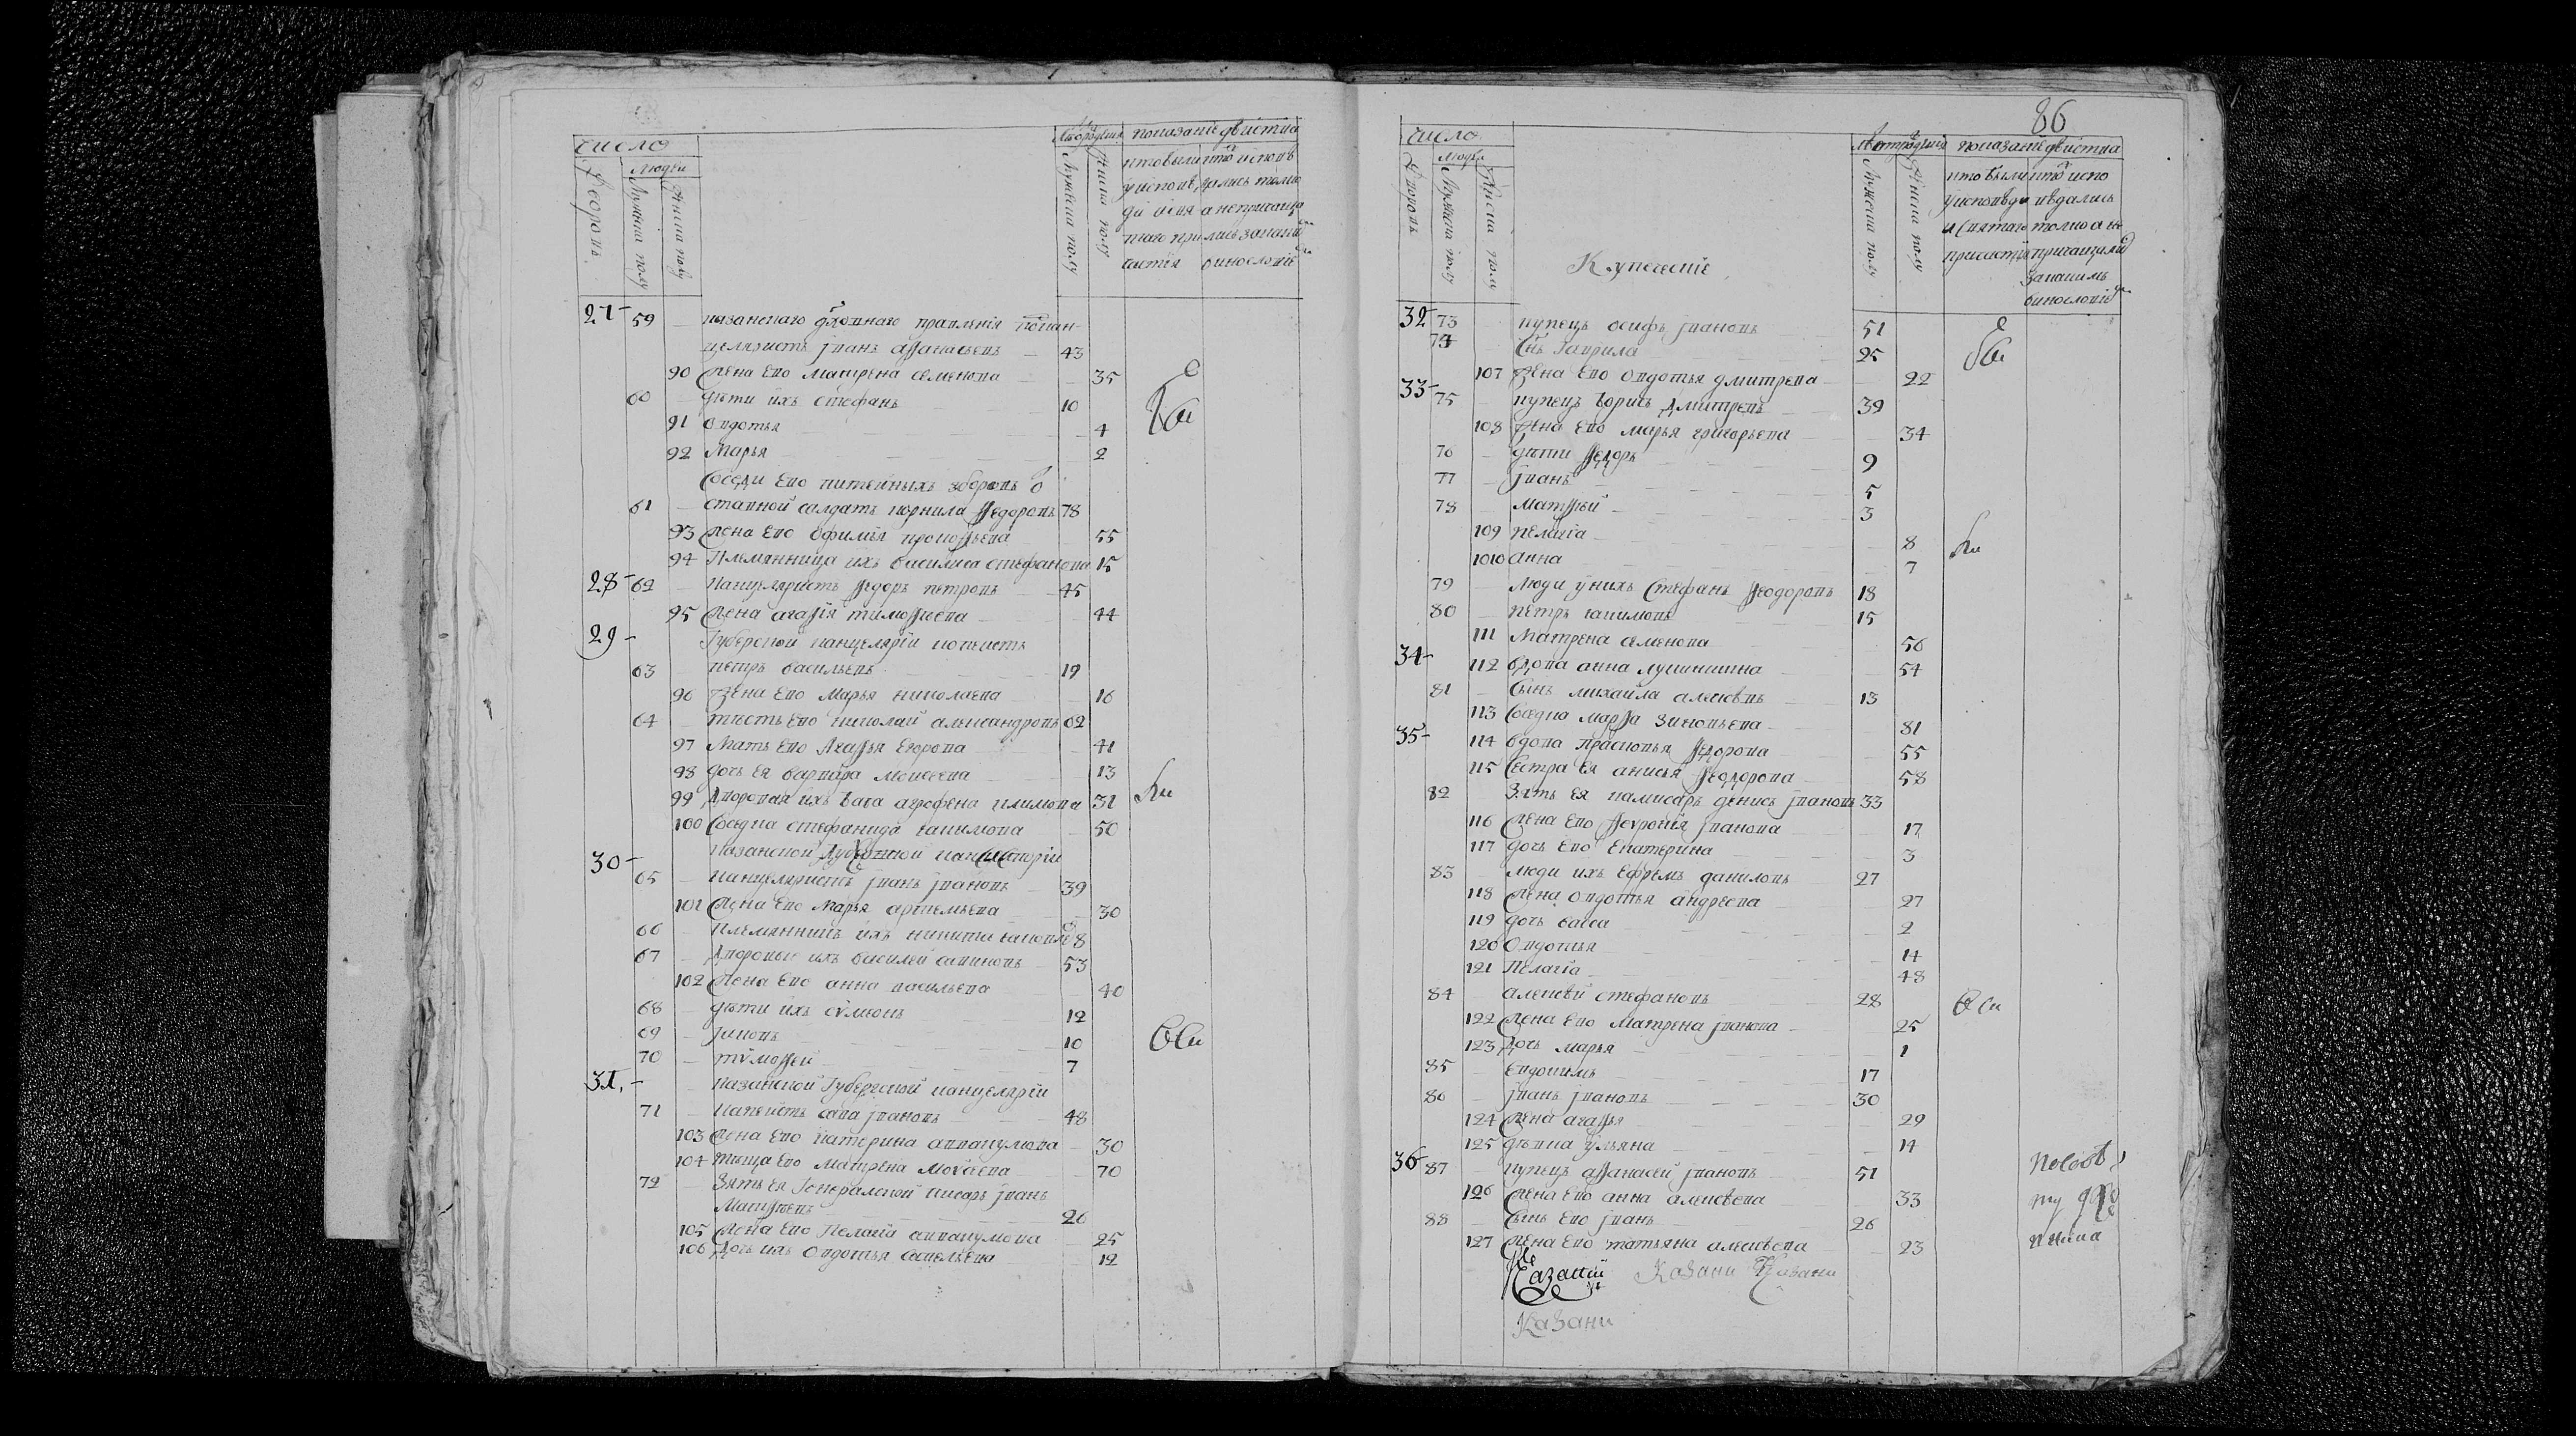 число
людей
Дворовъ
Мужска полу
Женска полу
Мужеска полу
Женска полу
показаніе двистпа
кто были
кто исповѣ
у исповѣ
дались толко
ди и свя
а непричаща
таго при
лись за каким
частія
винословіем
27 59 казанскаго духовнаго правленія
целяристъ іванъ афанасьевъ 43
90 жена ево матрена семенова 35
60 дѣти ихъ стефанъ 10
91 овдотья 4
92 Марья 2
Соседи ево питейныхъ зборовъ о
61 ставной салдатъ корнила федоровъ 78
93 жена ево офимья прокофьева 55
94 Племянница ихъ василиса стефанова 15
28 62 канцеляристъ федоръ петровъ 45
95 жена агафія тимофѣева 44
29 Губернской канцеляріи копеистъ
63 петръ васильевъ 19
96 жена ево марья николаева 16
64 тесть ево николай александровъ 62
97 Мать ево Агафья егорова 41
98 дочь ея варвара моисеева 13
99 дворовая ихъ баба агрофена климова 31
100 Соседка стефанида екимова 50
30 казанской канцеляріи
65 канцеляристъ іванъ івановъ 39
101 жена ево марья артемьева 30
66 племянникъ ихъ никита 8
67 дворовыи ихъ василей савиновъ 53
102 жена ево анна васильева 40
68 дѣти ихъ сѵмеонъ 12
69 іаковъ 10
70 тимофей 7
31 казанской Губернской канцеляріи
71 капеистъ сава івановъ 48
103 жена ево катерина аввакумова 30
104 теща ево матрена моѵсеева 70
72 Зять ея Генералской писарь іванъ
Матфѣевъ 26
105 жена ево пелагія аввакумова 25
106 дочь ихъ овдотья савельева 12
86
число
людей
Дворовъ
Мужска полу
Женска полу
Купеческіе
Мужеска полу
Женска полу
показаніе двистпа
кто были
кто испо
у исповѣди
ведались
и святаго
толко а не
причастія
причащались
за каким
винословіем
32 73 купецъ осифъ івановъ 51
74 Снъ гаврила 25
107 жена ево овдотья дмитрева 22
33 75 купецъ борисъ дмитревъ 39
108 жена ево марья григорьева 34
76 дѣти федоръ 9
77 іванъ 5
78 матфей 3
109 пелагіа 8
1010 анна 7
79 люди у нихъ стефанъ феодоровъ 18
80 петръ екимовъ 15
111 матрена семенова 56
34 112 вдова анна лукиншина 54
81 сынъ михаила алексѣвъ 13
113 соседка марфа зиновьева 81
35 114 вдова прасковья федорова 55
115 Сестра ея анисья феодорова 58
82 Зять ея камисаръ денисъ івановъ 33
116 жена ево февронія іванова 17
117 дочь ево екатерина 3
83 люди ихъ ефремъ даниловъ 27
118 жена овдотья андреева 27
119 дочь васса 2
120 Овдотья 14
121 Пелагіа 48
84 алексѣй стефановъ 28
122 жена ево матрена іванова 25
123 дочь марья 1
85 евдокимъ 17
86 іванъ івановъ 30
124 жена агафья 29
125 дѣвка ульяна 14
36 87 купецъ афанасей івановъ 51
126 жена ево анна алексѣева 33
88 сынъ ево іванъ 26
127 жена ево татьяна алексѣева 23
Казани Казани
Казани